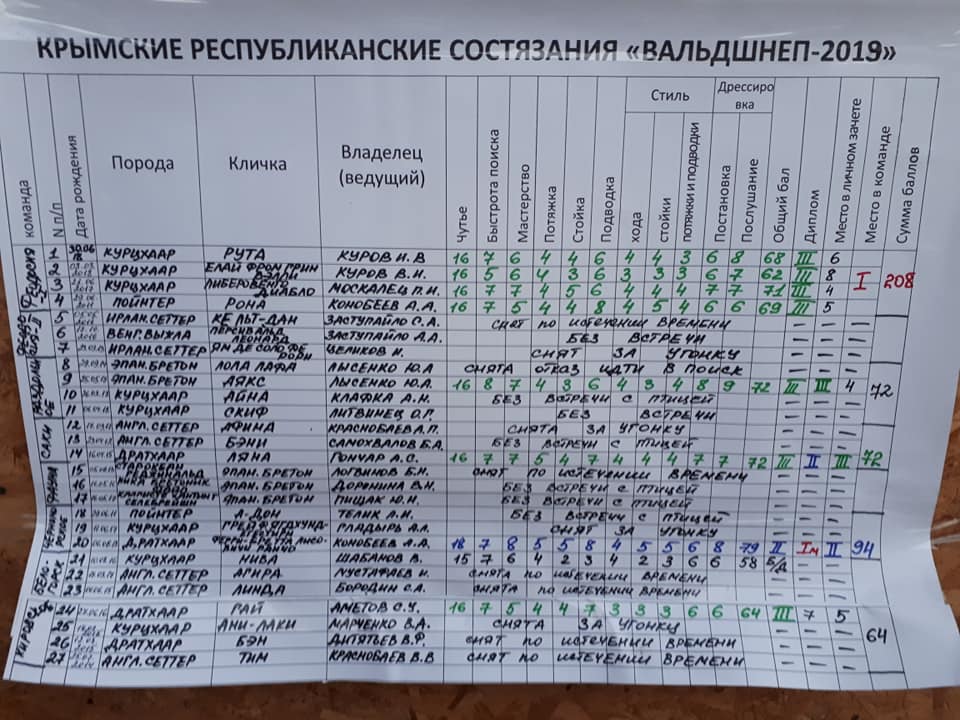 КРЫМСКИЕ РЕСПУБЛИКАНСКИЕ СОСТЯЗАНИЯ «ВАЛЬДШНЕП-2019»
команда N п/п Дата рождения Порода Кличка Владелец (ведущий) Чутье Быстрота поиска Мастерство Потяжка Стойка Подводка Стиль хода стойки потяжки и подводки Дрессировка Постановка Послушание Общий бал Диплом Место в личном зачете Место в команде Сумма баллов
1 КУРЦХААР РУТА КУРОВ И.В 16 7 6 4 4 6 4 4 3 6 8 68 III 6
2 КУРЦХААР ЕЛАЙ ФРОМ ГРИН ВЭЛЛИ КУРОВ В.И. 16 5 6 4 3 6 3 3 3 6 7 62 III 8
3 КУРЦХААР ДИАБЛО МОСКАЛЕЦ П.И. 16 7 7 4 5 6 4 4 4 7 7 71 III 4 I 208
4 ПОЙНТЕР РОНА КОНОБЕЕВ А.А. 16 7 5 4 4 8 4 5 4 6 6 69 III 5
5 ИРЛАН.СЕТТЕР КЕЛЬТ-ДАН ЗАСТУПАЙЛО С.А. СНЯТ ПО ИСТЕЧЕНИИ ВРЕМЕНИ – – –
6 ВЕНГ.ВЫЖЛА ПЕРСИВАЛЬД ЛЕОНАРД ЗАСТУПАЙЛО А.А. БЕЗ ВСТРЕЧИ – – –
7 ИРЛАН.СЕТТЕР ЦЕЛИКОВ И. СНЯТ ЗА УГОНКУ – – –
8 ЭПАН.БРЕТОН ЛОЛА ЛАФА ЛЫСЕНКО Ю.А СНЯТА ОТКАЗ ИДТИ В ПОИСК – – –
9 ЭПАН.БРЕТОН АЯКС ЛЫСЕНКО Ю.А. 16 8 7 4 3 6 4 3 4 8 9 72 III III 4 72
10 КУРЦХААР АЙНА КЛАФКА А.Н. БЕЗ ВСТРЕЧИ С ПТИЦЕЙ – – –
11 КУРЦХААР СКИФ ЛИТВИНЕЦ О.Г. БЕЗ ВСТРЕЧИ – – –
САКИ 12 АНГЛ.СЕТТЕР АФИНА КРАСНОБАЕВ А.П. СНЯТА ЗА УГОНКУ – – –
13 АНГЛ.СЕТТЕР БЭНИ САМОХВАЛОВ Б.А. БЕЗ ВСТРЕЧИ С ПТИЦЕЙ – – –
14 ДРАТХААР ЛЯНА ГОНЧАР А.С. 16 7 7 5 4 7 4 4 4 7 7 72 III II III 72
15 ЭПАН.БРЕТОН ЛОГВИНОВ Б.Н. СНЯТ ПО ИСТЕЧЕНИИ ВРЕМЕНИ – – –
16 ЭПАН.БРЕТОН ДОРЕНИНА В.Н. БЕЗ ВСТРЕЧИ С ПТИЦЕЙ – – –
17 ЭПАН.БРЕТОН ПИЩАК Ю.Н. БЕЗ ВСТРЕЧИ С ПТИЦЕЙ – – –
18 ПОЙНТЕР А-ДОН ТЕЛИК А.И. БЕЗ ВСТРЕЧИ С ПТИЦЕЙ – – –
19 КУРЦХААР ГЛАДЫРЬ А.Л. СНЯТ ЗА УГОНКУ – – –
20 ДРАТХААР КОНОБЕЕВ А.А. 18 7 8 5 5 8 4 5 5 6 8 79 II Iм II 94
21 КУРЦХААР НИВА ШАБАНОВ В. 15 7 6 4 2 3 4 2 3 6 6 58 Б/Д – –
БЕЛОГОРСК 22 АНГЛ.СЕТТЕР АГИРА МУСТАФАЕВ И. СНЯТА ПО ИСТЕЧЕНИИ ВРЕМЕНИ – – –
23 АНГЛ.СЕТТЕР ЛИНДА БОРОДИН С.А. СНЯТА ПО ИСТЕЧЕНИИ ВРЕМЕНИ – – –
24 ДРАТХААР РАЙ АМЕТОВ С.У. 16 7 5 4 4 7 3 3 3 6 6 64 III 7 5
25 КУРЦХААР АНИ-ЛАКИ МАРЧЕНКО В.А. СНЯТА ЗА УГОНКУ – – –
26 ДРАТХААР БЭН ДИТЯТЬЕВ В.Ф. СНЯТ ПО ИСТЕЧЕНИИ ВРЕМЕНИ – – – 64
27 АНГЛ.СЕТТЕР ТИМ КРАСНОБАЕВ В.В СНЯТ ПО ИСТЕЧЕНИИ ВРЕМЕНИ – – –